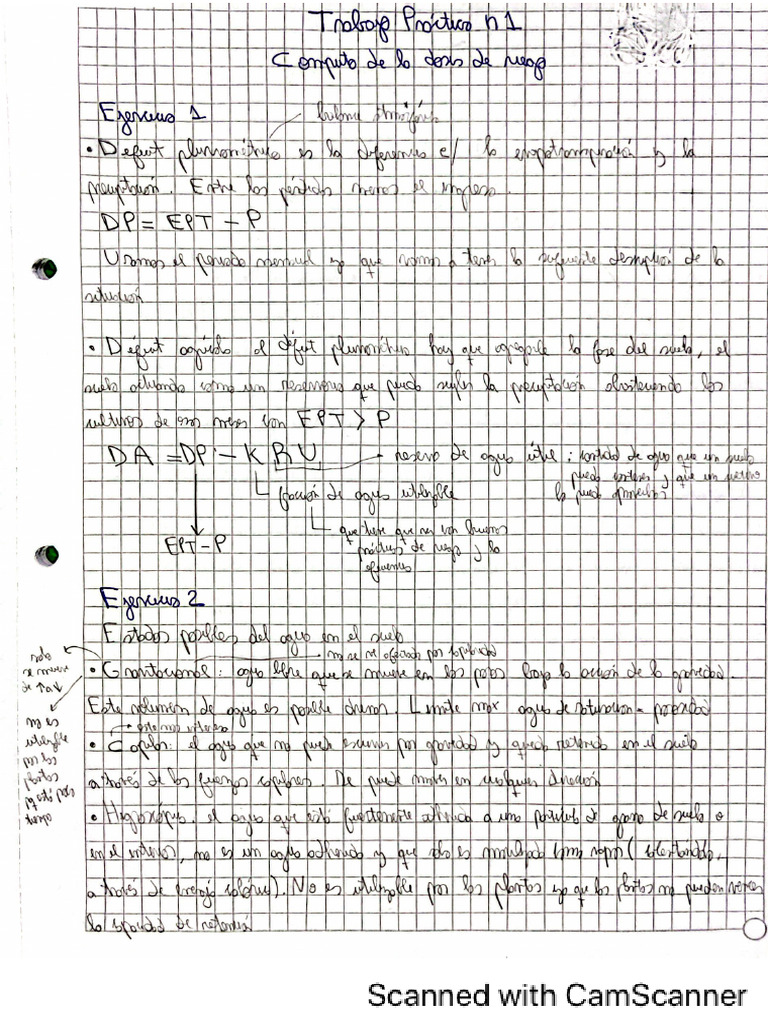 Trabajo Práctico n 1
Computo de la dosis de riego
Ejercicio 1
balance atmosférico
• Deficit pluviométrico es la diferencia e/ la evapotranspiración y la
precipitación. Entre las pérdidas menos el ingreso.
DP = EPT - P
Usamos el periodo mensual ya que vamos a tener la suficiente descripción de la
situación
• Déficit agrícola al déficit pluviométrico hay que agregarle la fase del suelo, el
suelo actuando como un reservorio que puede suplir la precipitación abasteciendo los
cultivos de esos meses con EPT > P
DA = DP - K RU reserva de agua útil: cantidad de agua que un suelo
puede contener y que un
la puede aprovechar
fracción de agua utilizable
que tiene que ver con buenas
prácticas de riego y la
EPT - P
Ejercicio 2
Estados posibles del agua en el suelo
no se ve afectada por capilaridad
• Gravitacional: agua libre que se mueve en los poros bajo la acción de la gravedad.
solo
se mueve
de ↑ a ↓
no es
utilizable
por las
plantas
Este volumen de agua es posible drenar. Limite max agua de saturacion = porosidad
este nos interesa
• Capilar: el agua que no puede escurrir por gravedad y queda retenida en el suelo
a través de las fuerzas capilares. Se puede mover en cualquier dirección
• Higroscópica: el agua que está fuertemente adherida a una partícula de grano de suelo o
en el interior, no es un agua adherida y que solo es movilizada como vapor (calentando,
a través de energía calórica). No es utilizable por las plantas ya que las plantas no pueden vencer
la capacidad de retención
Scanned with CamScanner